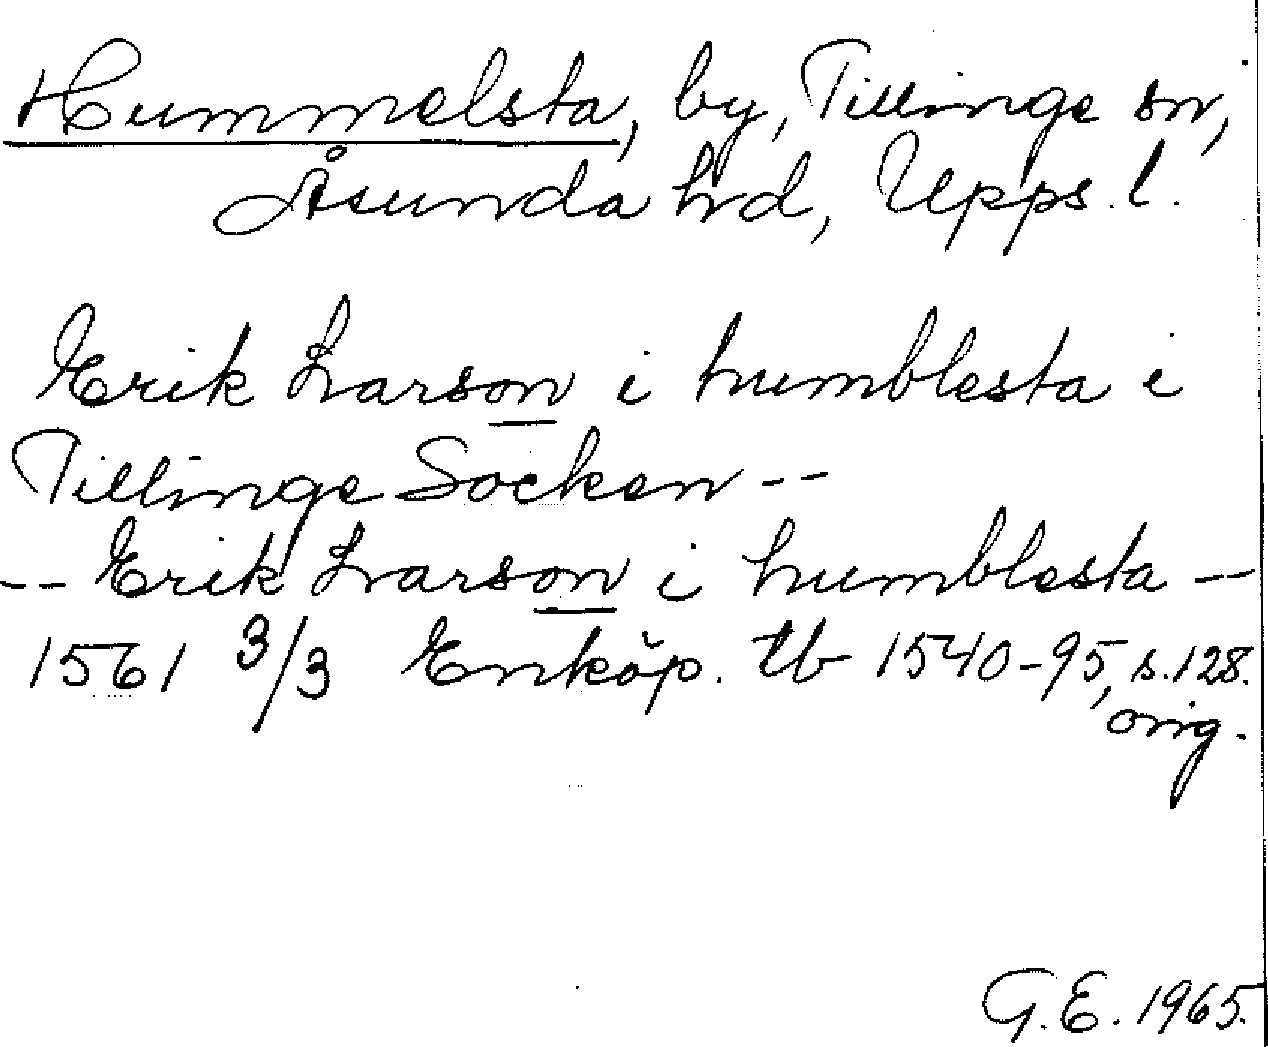 Hummelsta, by, Tillinge sn,
Åsunda hrd, Upps. l.
Erik Larson i humblesta i
Tillinge Socken --
-- Erik Larson i humblesta --
1561 3/3 Enköp. tb 1540-95, s. 128.
orig.
G. E. 1965.